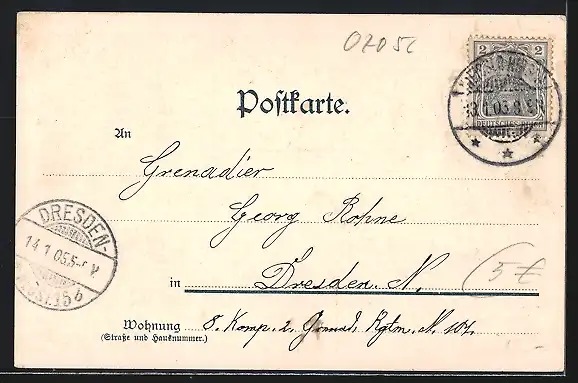 0205
2 2
13 1 05 8
DEUTSCHES REICH
Postkarte.
An
Grenadier
Georg Kohne
DRESDEN-
14 1 05 5-6 V
in Dresden. N.
5 €
Wohnung 8. Komp. 2. Rgtm. N. 101.
(Straße und Hausnummer.)